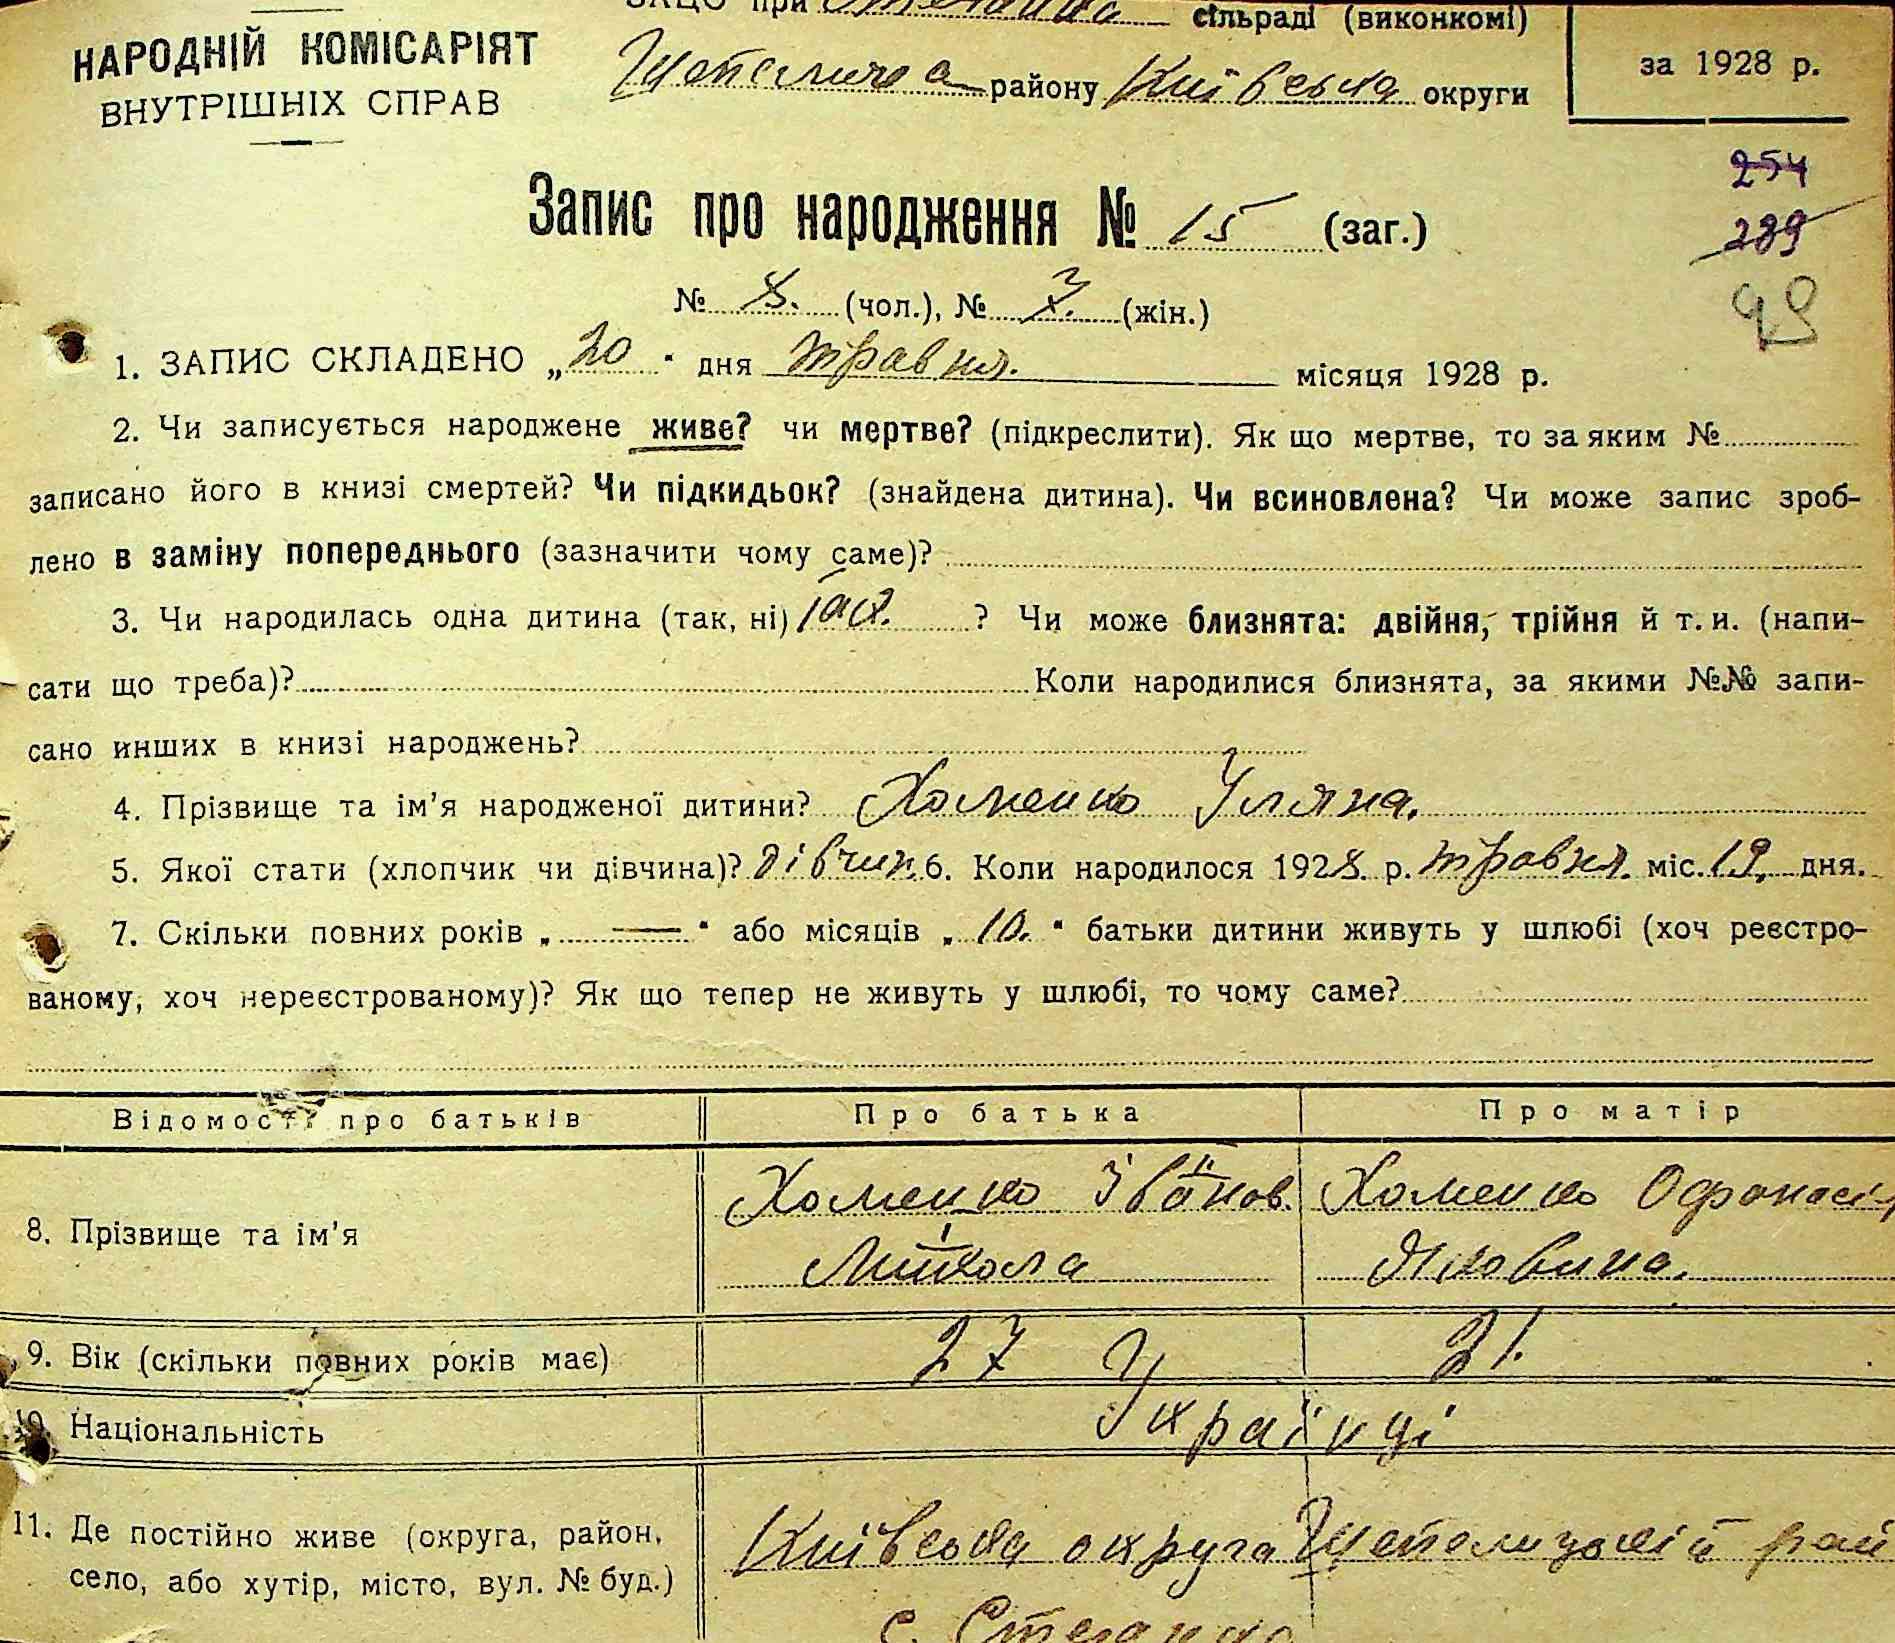 ЗАЦС при Степанка сільраді (виконкомі)
НАРОДНІЙ КОМІСАРІЯТ
ВНУТРІШНІХ СПРАВ
району Київська округи
за 1928 р.
254
289
Запис про народження № 15 (заг.)
№ 8. (чол.), № 7. (жін.)
1. ЗАПИС СКЛАДЕНО „20" дня травня. місяця 1928 р.
2. Чи записується народжене живе? чи мертве? (підкреслити). Як що мертве, то за яким №
записано його в книзі смертей? Чи підкидьок? (знайдена дитина). Чи всиновлена? Чи може запис зроб-
лено в заміну попереднього (зазначити чому саме)?
3. Чи народилась одна дитина (так, ні) ? Чи може близнята: двійня, трійня й т. и. (напи-
сати що треба)? Коли народилися близнята, за якими №№ запи-
сано инших в книзі народжень?
4. Прізвище та ім'я народженої дитини? Хоменко Уляна.
5. Якої стати (хлопчик чи дівчина)? дівчин. 6. Коли народилося 1928. р. травня. міс. 19. дня.
7. Скільки повних років „ — " або місяців „ 10. " батьки дитини живуть у шлюбі (хоч реєстро-
ваному, хоч нереєстрованому)? Як що тепер не живуть у шлюбі, то чому саме?
Відомості про батьків Про батька Про матір
8. Прізвище та ім'я
Хоменко Іванов. Микола
Хоменко Офанасія Яковина.
9. Вік (скільки повних років має) 27 21.
10. Національність Українці
11. Де постійно живе (округа, район,
село, або хутір, місто, вул. № буд.)
Київська округа рай
с.